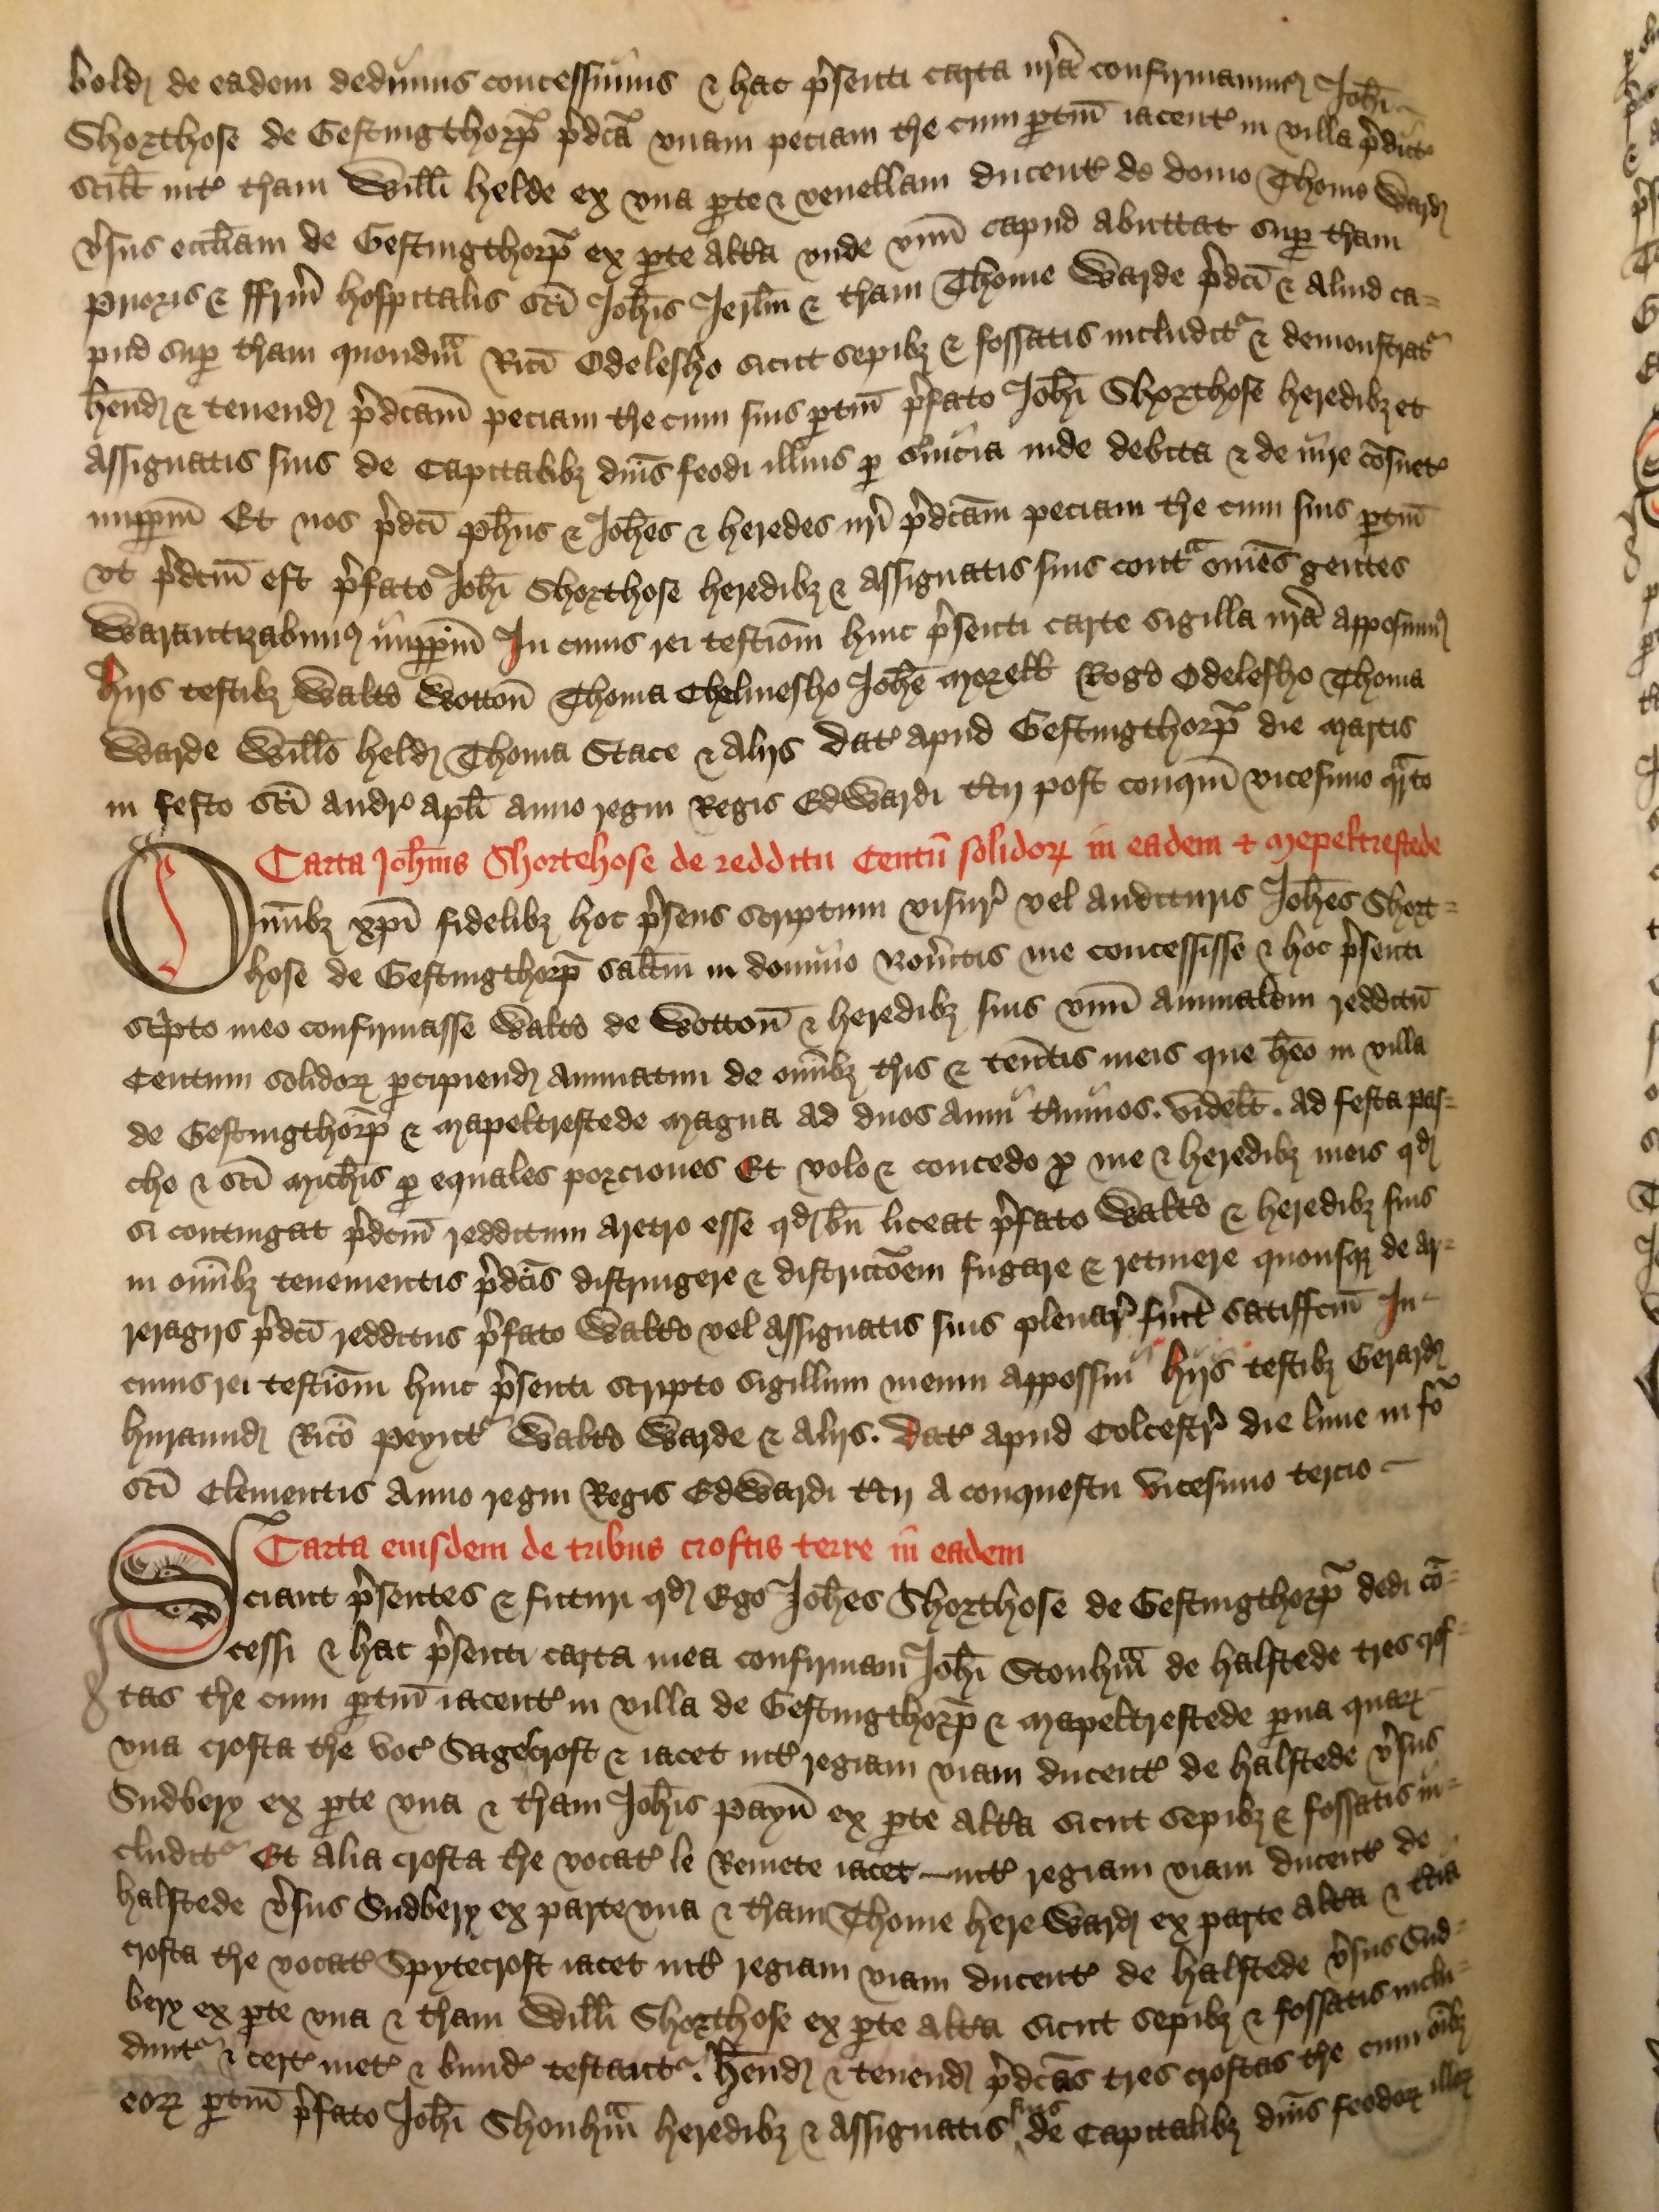 bold de eadem dedimus concessimus & hac p'senti carta nr̄a confirmauimus Joh̄i
Shorthose de Gestingthorp̄ p'dcā vnam peciam tr̄e cum ptin̄ iacent' in villa p'dict'
scilt int' tr̄am Willi helde ex vna pte & venellam ducent' de domo Thome Ward
v'sus eccliam de Gestingthorp̄ ex pte alt'a vnde vnū capud abuttat sup tr̄am
prioris & ffrm̄ hospitalis sc̄i Joh̄is Jerlm̄ & tr̄am Thome Warde p'dcī & aliud ca=
pud sup tr̄am quondm̄ Ric̄i Odelesho sicut sepibz & fossatis includit' & demonstrat'
h̄end & tenend p'dcam̄ peciam tr̄e cum suis ptin̄ p'fato Joh̄i Shorthose heredibz et
assignatis suis de Capitalibz dn̄is feodi illius p s'uicia inde debita & de iure cōsuet'
imppm̄ Et nos p'dcī Ph̄us & Joh̄es & heredes nr̄i p'dcām peciam tr̄e cum suis ptin̄
vt p'dcm̄ est p'fato Joh̄i Shorthose heredibz & assignatis suis cont'a om̄es gentes
Warantizabimus imppm̄ In cuius rei testiom̄ huic p'senti carte sigilla nr̄a apposuimus
hijs testibz Walt'o Wotton̄ Thoma Chelmesho Joh̄e Morell Rog'o Odelesho Thoma
Warde Willo held Thoma Stace & alijs Dat' apud Gestingthorp̄ die martis
in festo sc̄i andr' apli anno regni Regis Edwardi t'cij post conqm̄ vicesimo qrto
Carta Joh̄nis Shortehose de redditu Centū solidor in eadem & Mepeltrestede
Omībz xp̄i fidelibz hoc p'sens scriptum visur' vel audituris Joh̄es Short=
hose de Gestingthorp̄ salt̄m in domino Nou'itis me concessisse & hoc p'senti
scpto meo confirmasse Walt'o de Wotton̄ & heredibz suis vnū annualem redditū
Centum solidor pcipiend annuatim de om̄ibz tr̄is & ten̄tis meis que h̄eo in villa
de Gestingthorp̄ & Mapeltrestede Magna ad duos anni t'minos. videlt. ad festa pas=
che & sc̄i Mich̄is p equales porciones Et volo & concedo p me & heredibz meis qd
si contingat p'dcm̄ redditum aretro esse qd bn̄ liceat p'fato Walt'o & heredibz suis
in om̄ibz tenementis p'dcīs distringere & districcōem fugare & retinere quousqz de ar=
reragijs p'dcī redditus p'fato Walt'o vel assignatis suis plenar' fu'it satiffcm̄ In
cuius rei testiom̄ huic p'senti scripto sigillum meum appossui hijs testibz Gerard
huraund Ric̄o Peynt' Walt'o Warde & alijs. Dat' apud Colcestr' die lune in fō
sc̄i Clementis anno regni Regis Edwardi t'cij a conquestu vicesimo tercio
Carta eiusdem de tribus croftis terre in eadem
Sciant p'sentes & futuri qd Ego Joh̄es Shorthose de Gestingthorp̄ dedi cō=
cessi & hac p'senti carta mea confirmaui Joh̄i Stonhm̄ de halstede tres crof=
tas tr̄e cum ptin̄ iacent' in villa de Gestingthorp̄ & Mapeltrestede pua quar
vna crofta tr̄e voc' Sagecroft & iacet int' regiam viam ducent' de halstede v'sus
Sudbery ex pte vna & tr̄am Joh̄is Payn̄ ex pte alt'a sicut sepibz & fossatis in=
cludit' Et alia crofta tr̄e vocat' le Remete iacet int' regiam viam ducent' de
halstede v'sus Sudbery ex parte vna & tr̄am Thome hereward ex parte alt'a & t'cia
crofta tr̄e vocat' Spytecroft iacet int' regiam viam ducent' de halstede v'sus Sud=
bery ex pte vna & tr̄am Willi Shorthose ex pte alt'a sicut sepibz & fossatis inclu=
dunt' & cert' met' & bund' testant'. h̄end & tenend p'dcās tres croftas tr̄e cum oībz
eor ptin̄ p'fato Joh̄i Shonhm̄ heredibz & assignatis suis de Capitalibz dn̄is feodor illor